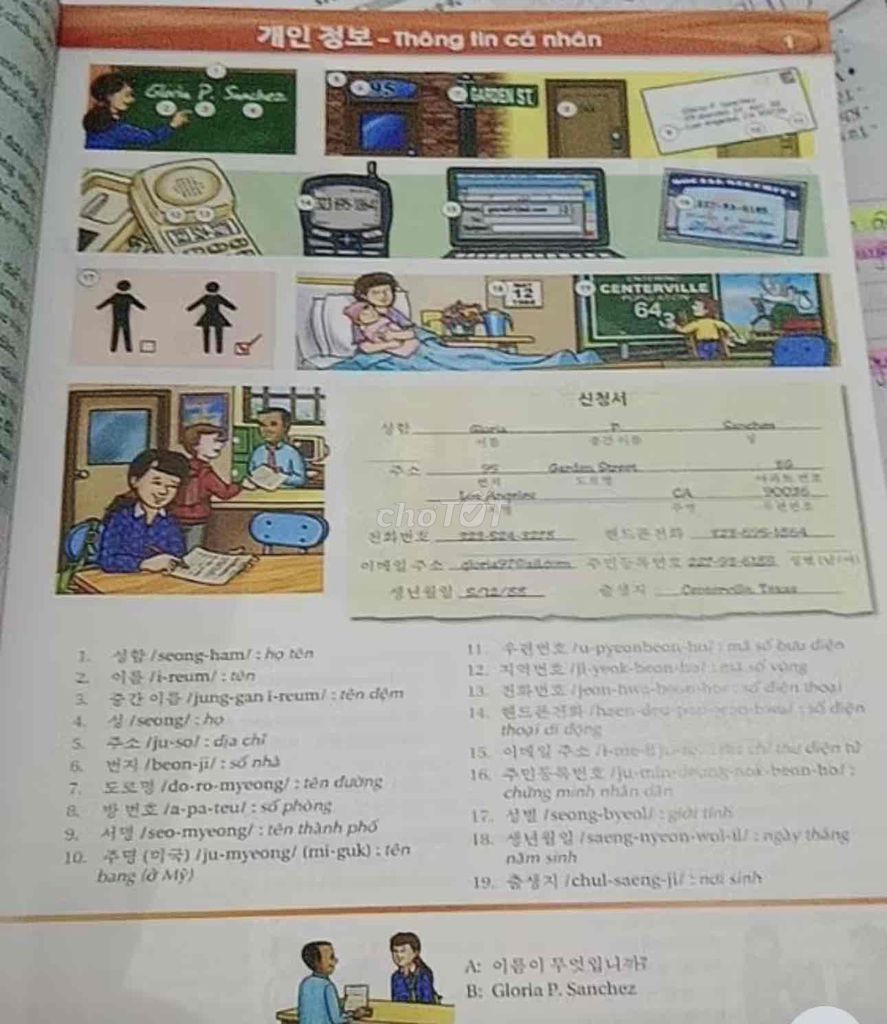 개인 정보 - Thông tin cá nhân
1
Gloria P. Sanchez
95
GARDEN ST.
323 695-1864
CENTERVILLE
POPULATION
64
3
12
신청서
성함 Gloria P. Sanchez
이름 중간 이름 성
주소 95 Garden Street
번지 도로명 아파트 번호
Los Angeles CA
주명 우편번호
전화번호 핸드폰 전화
이메일 주소 주민등록번호
생년월일 출생지 Centerville, Texas
choTỐT
1. 성함 /seong-ham/ : họ tên
2. 이름 /i-reum/ : tên
3. 중간 이름 /jung-gan i-reum/ : tên đệm
4. 성 /seong/ : họ
5. 주소 /ju-so/ : địa chỉ
6. 번지 /beon-ji/ : số nhà
7. 도로명 /do-ro-myeong/ : tên đường
8. 방 번호 /a-pa-teu/ : số phòng
9. 서명 /seo-myeong/ : tên thành phố
10. 주명 (미국) /ju-myeong/ (mi-guk) : tên
bang (ở Mỹ)
11. 우편번호 /u-pyeonbeon-ho/ : mã số bưu điện
12. 지역번호 /ji-yeok-beon-ho/ : mã số vùng
13. 전화번호 /jeon-hwa-beon-ho/ : số điện thoại
14. 핸드폰 전화 : số điện
thoại di động
15. 이메일 주소 thư điện tử
16. 주민등록번호 /ju-min-deung-nok-beon-ho/ :
chứng minh nhân dân
17. 성별 /seong-byeol/ : giới tính
18. 생년월일 /saeng-nyeon-wol-il/ : ngày tháng
năm sinh
19. 출생지 /chul-saeng-ji/ : nơi sinh
A: 이름이 무엇입니까?
B: Gloria P. Sanchez